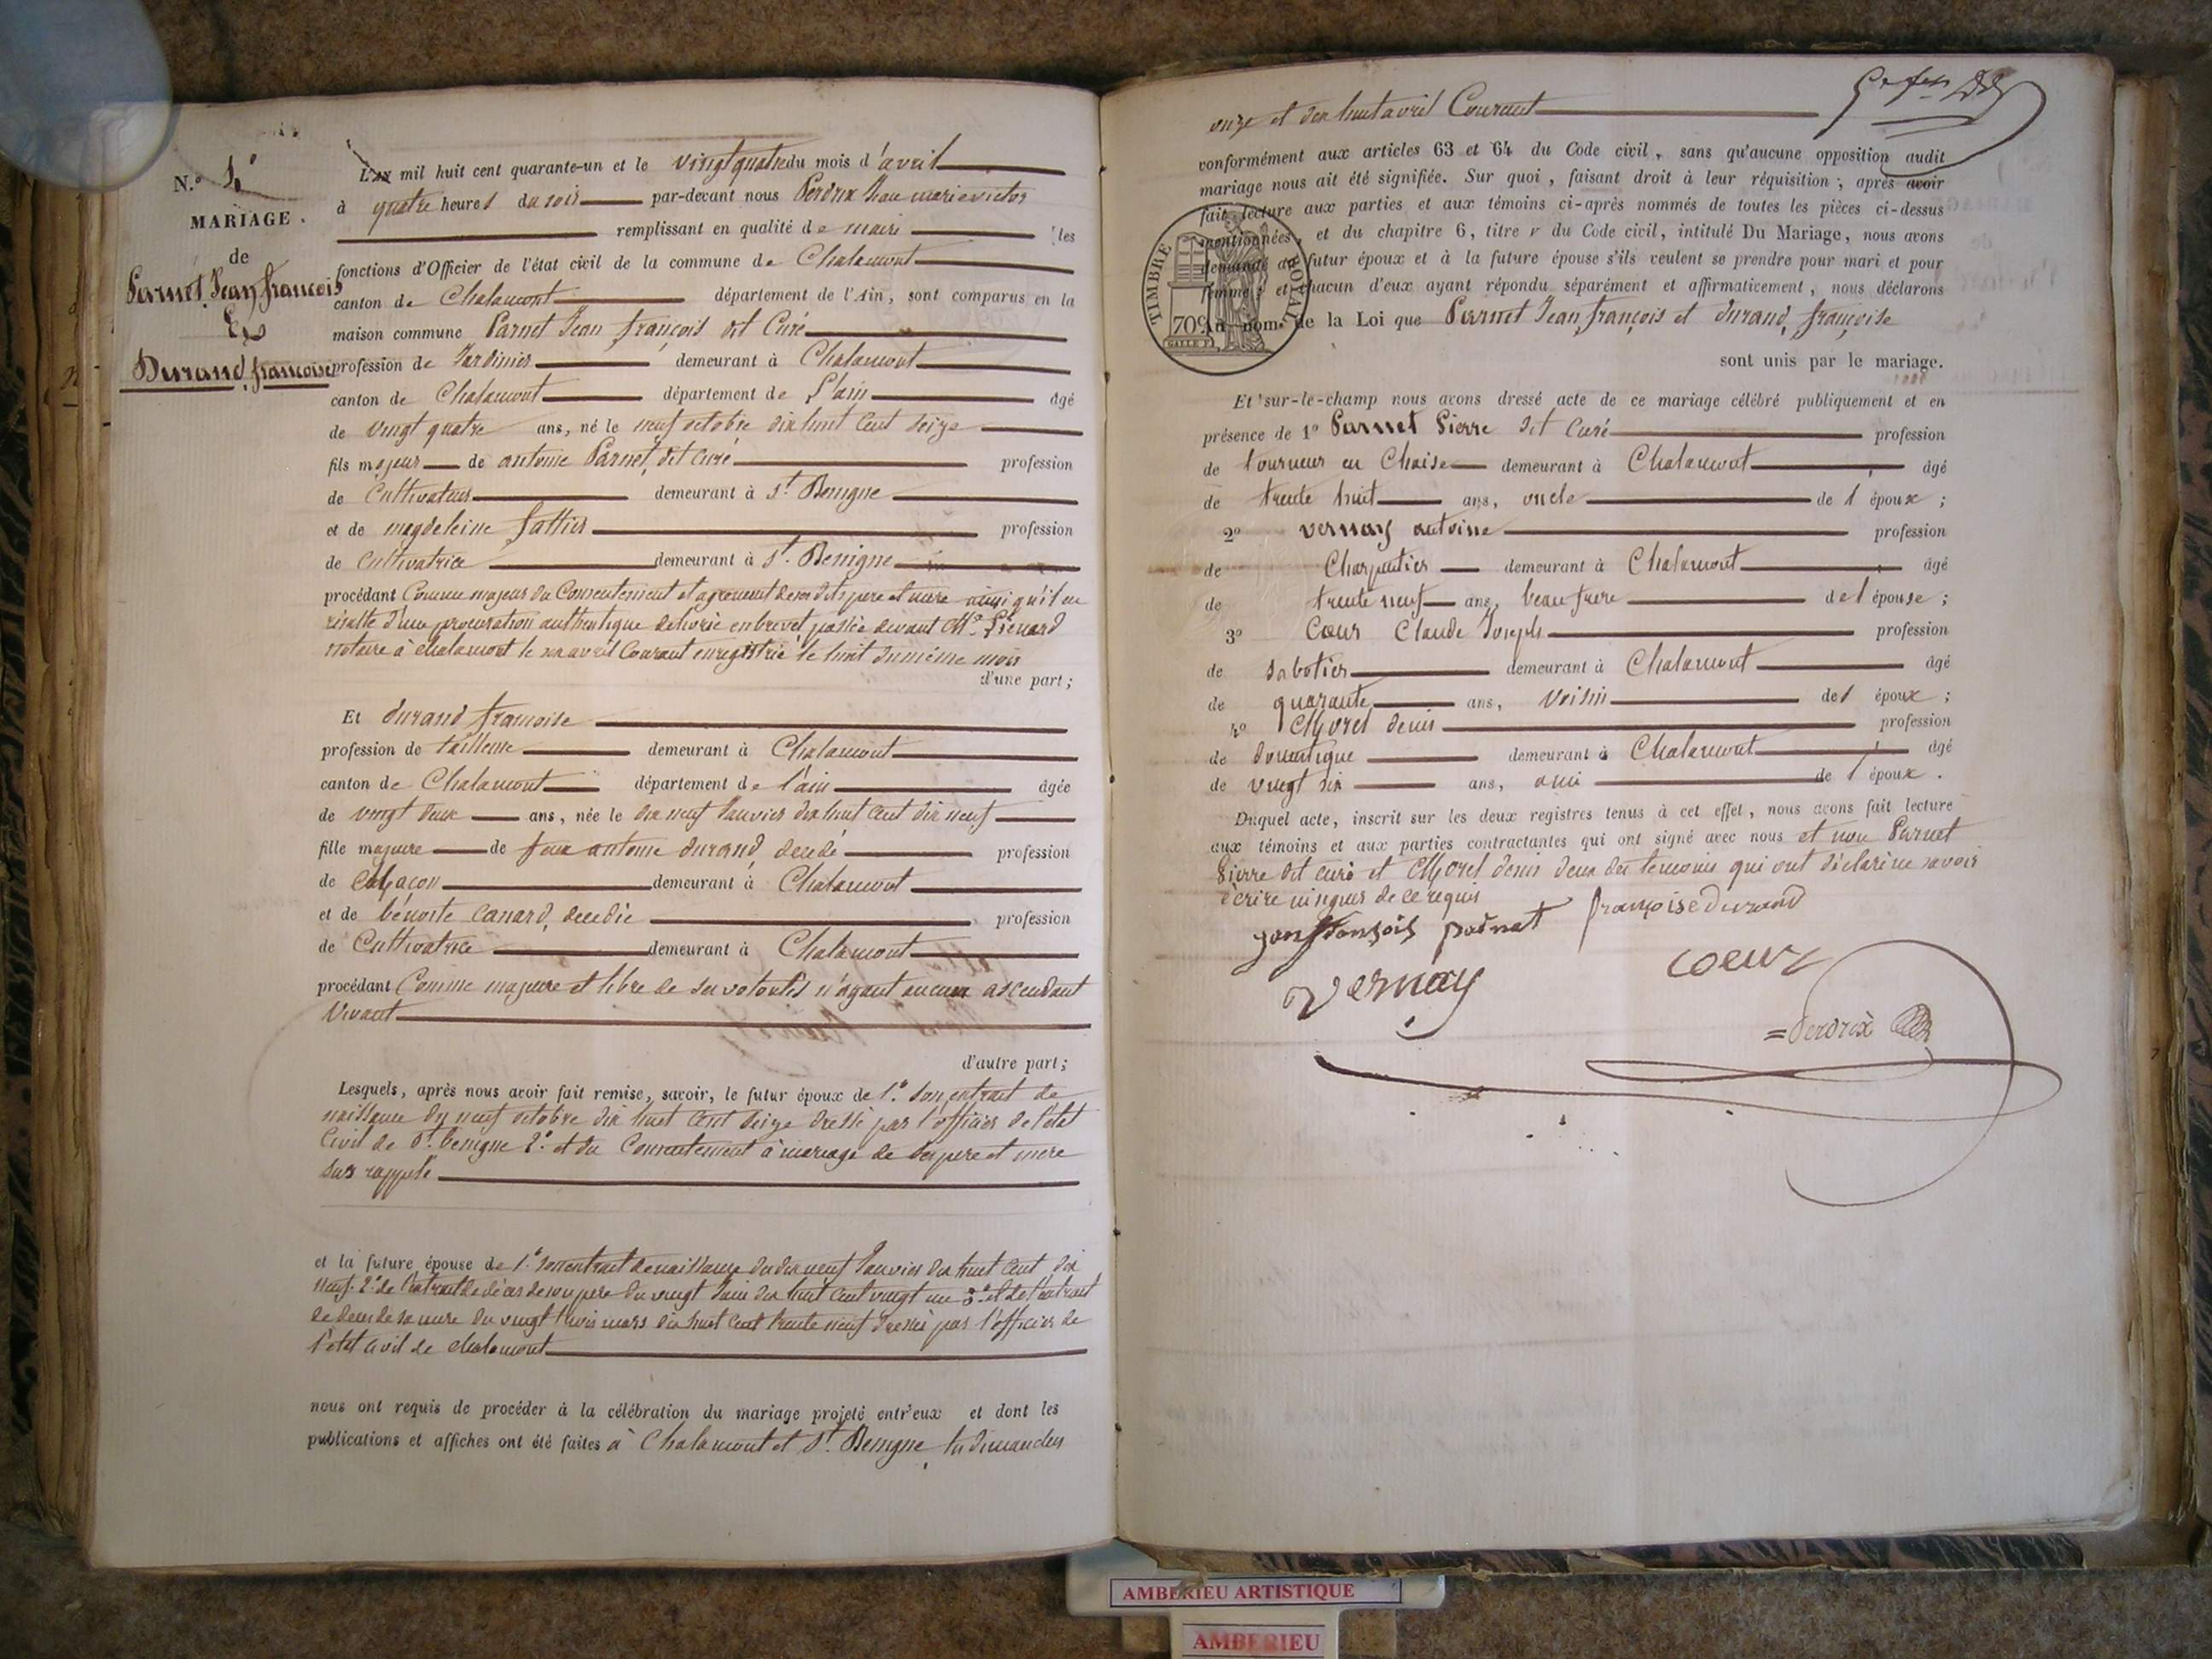 N.º
MARIAGE.
de
Parnet Jean françois
Et
Durand françoise
L'an mil huit cent quarante-un et le vingt quatre du mois d'avril
à quatre heures du soir par-devant nous Perdrix Jean marie victor
remplissant en qualité de maire les
fonctions d'Officier de l'état civil de la commune de Chalamont
canton de Chalamont département de l'Ain, sont comparus en la
maison commune Parnet Jean françois dit Curé
profession de Jardinier demeurant à Chalamont
canton de Chalamont département de L'ain âgé
de vingt quatre ans, né le neuf octobre dix huit cent seize
fils majeur de antoine Parnet, dit Curé profession
de Cultivateur demeurant à St. Benigne
et de magdeleine fattier profession
de Cultivatrice demeurant à St. Benigne
procédant Comme majeur du Consentement et agrement de ses dits pere et mere ainsi qu'il en
résulte d'une procuration authentique delivrée en brevet passée devant Me.
notaire à chalamont le avril Courant enregistrée le huit du même mois
d'une part;
Et durand françoise
profession de tailleuse demeurant à Chalamont
canton de Chalamont département de l'ain âgée
de vingt deux ans, née le dix neuf Janvier dix huit cent dix neuf
fille majeure de feu antoine durand, decedé profession
de Maçon demeurant à Chalamont
et de bénoite Canard, decedée profession
de Cultivatrice demeurant à Chalamont
procédant Comme majeure et libre de ses volontés n'ayant aucun ascendant
Vivant
d'autre part;
Lesquels, après nous avoir fait remise, savoir, le futur époux de 1.º son extrait de
naissance du neuf octobre dix huit cent seize dressé par l'officier de l'état
Civil de St. benigne 2.º et du Consentement à mariage de ses pere et mere
sus rappelé
et la future épouse de 1.º son extrait de naissance du dix neuf Janvier dix huit cent dix
neuf. 2.º de l'extrait de décès de son pere du vingt Juin dix huit cent vingt un 3.º et de l'extrait
de deces de sa mere du vingt trois mars dix huit cent trente neuf dressés par l'officier de
l'etat Civil de chalamont
nous ont requis de procéder à la célébration du mariage projeté entr'eux et dont les
publications et affiches ont été faites à Chalamont et St. Benigne les dimanches
onze et dix huit avril Courant
conformément aux articles 63 et 64 du Code civil, sans qu'aucune opposition audit
mariage nous ait été signifiée. Sur quoi, faisant droit à leur réquisition; après avoir
fait lecture aux parties et aux témoins ci-après nommés de toutes les pièces ci-dessus
mentionnées, et du chapitre 6, titre v du Code civil, intitulé Du Mariage, nous avons
demandé au futur époux et à la future épouse s'ils veulent se prendre pour mari et pour
femme; et chacun d'eux ayant répondu séparément et affirmativement, nous déclarons
Au nom de la Loi que Parnet Jean françois et durand, françoise
sont unis par le mariage.
TIMBRE ROYAL
70c
Et sur-le-champ nous avons dressé acte de ce mariage célébré publiquement et en
présence de 1º Parnet Pierre dit Curé profession
de tourneur en Chaise demeurant à Chalamont âgé
de trente huit ans, oncle de l'époux;
2º vernay antoine profession
de Charpentier demeurant à Chalamont âgé
de trente neuf ans, beau frere de l'épouse;
3º Cœur Claude Joseph profession
de sabotier demeurant à Chalamont âgé
de quarante ans, voisin de l'époux;
4º Morel denis profession
de domestique demeurant à Chalamont âgé
de vingt six ans, ami de l'époux.
Duquel acte, inscrit sur les deux registres tenus à cet effet, nous avons fait lecture
aux témoins et aux parties contractantes qui ont signé avec nous et non Parnet
Pierre dit curé et Morel denis deux des temoins qui ont déclaré ne savoir
écrire ni signer de ce requis
françoise durand
parnet
coeur
vernay
Perdrix
AMBERIEU ARTISTIQUE
AMBERIEU